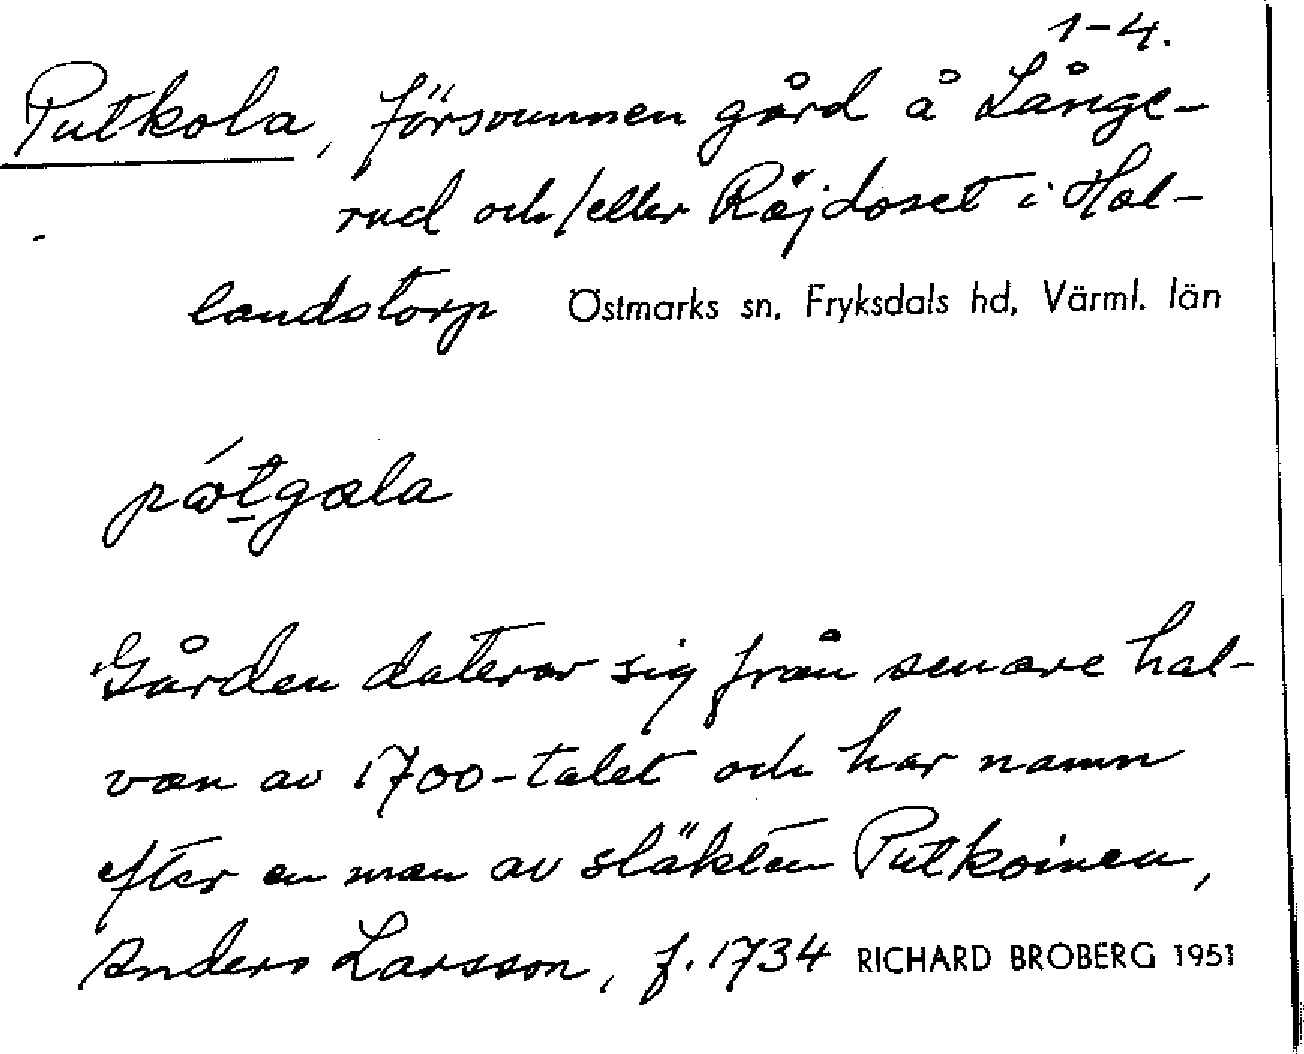 1-4.
Putkola, försvunnen gård å Långe-
rud och/eller Röjdoset i Hol-
landstorp Östmarks sn. Fryksdals hd, Värml. län
Gården daterar sig från senare häl-
van av 1700-talet och har namn
efter en man av släkten Putkoinen,
Anders Larsson, f. 1734 RICHARD BROBERG 1951